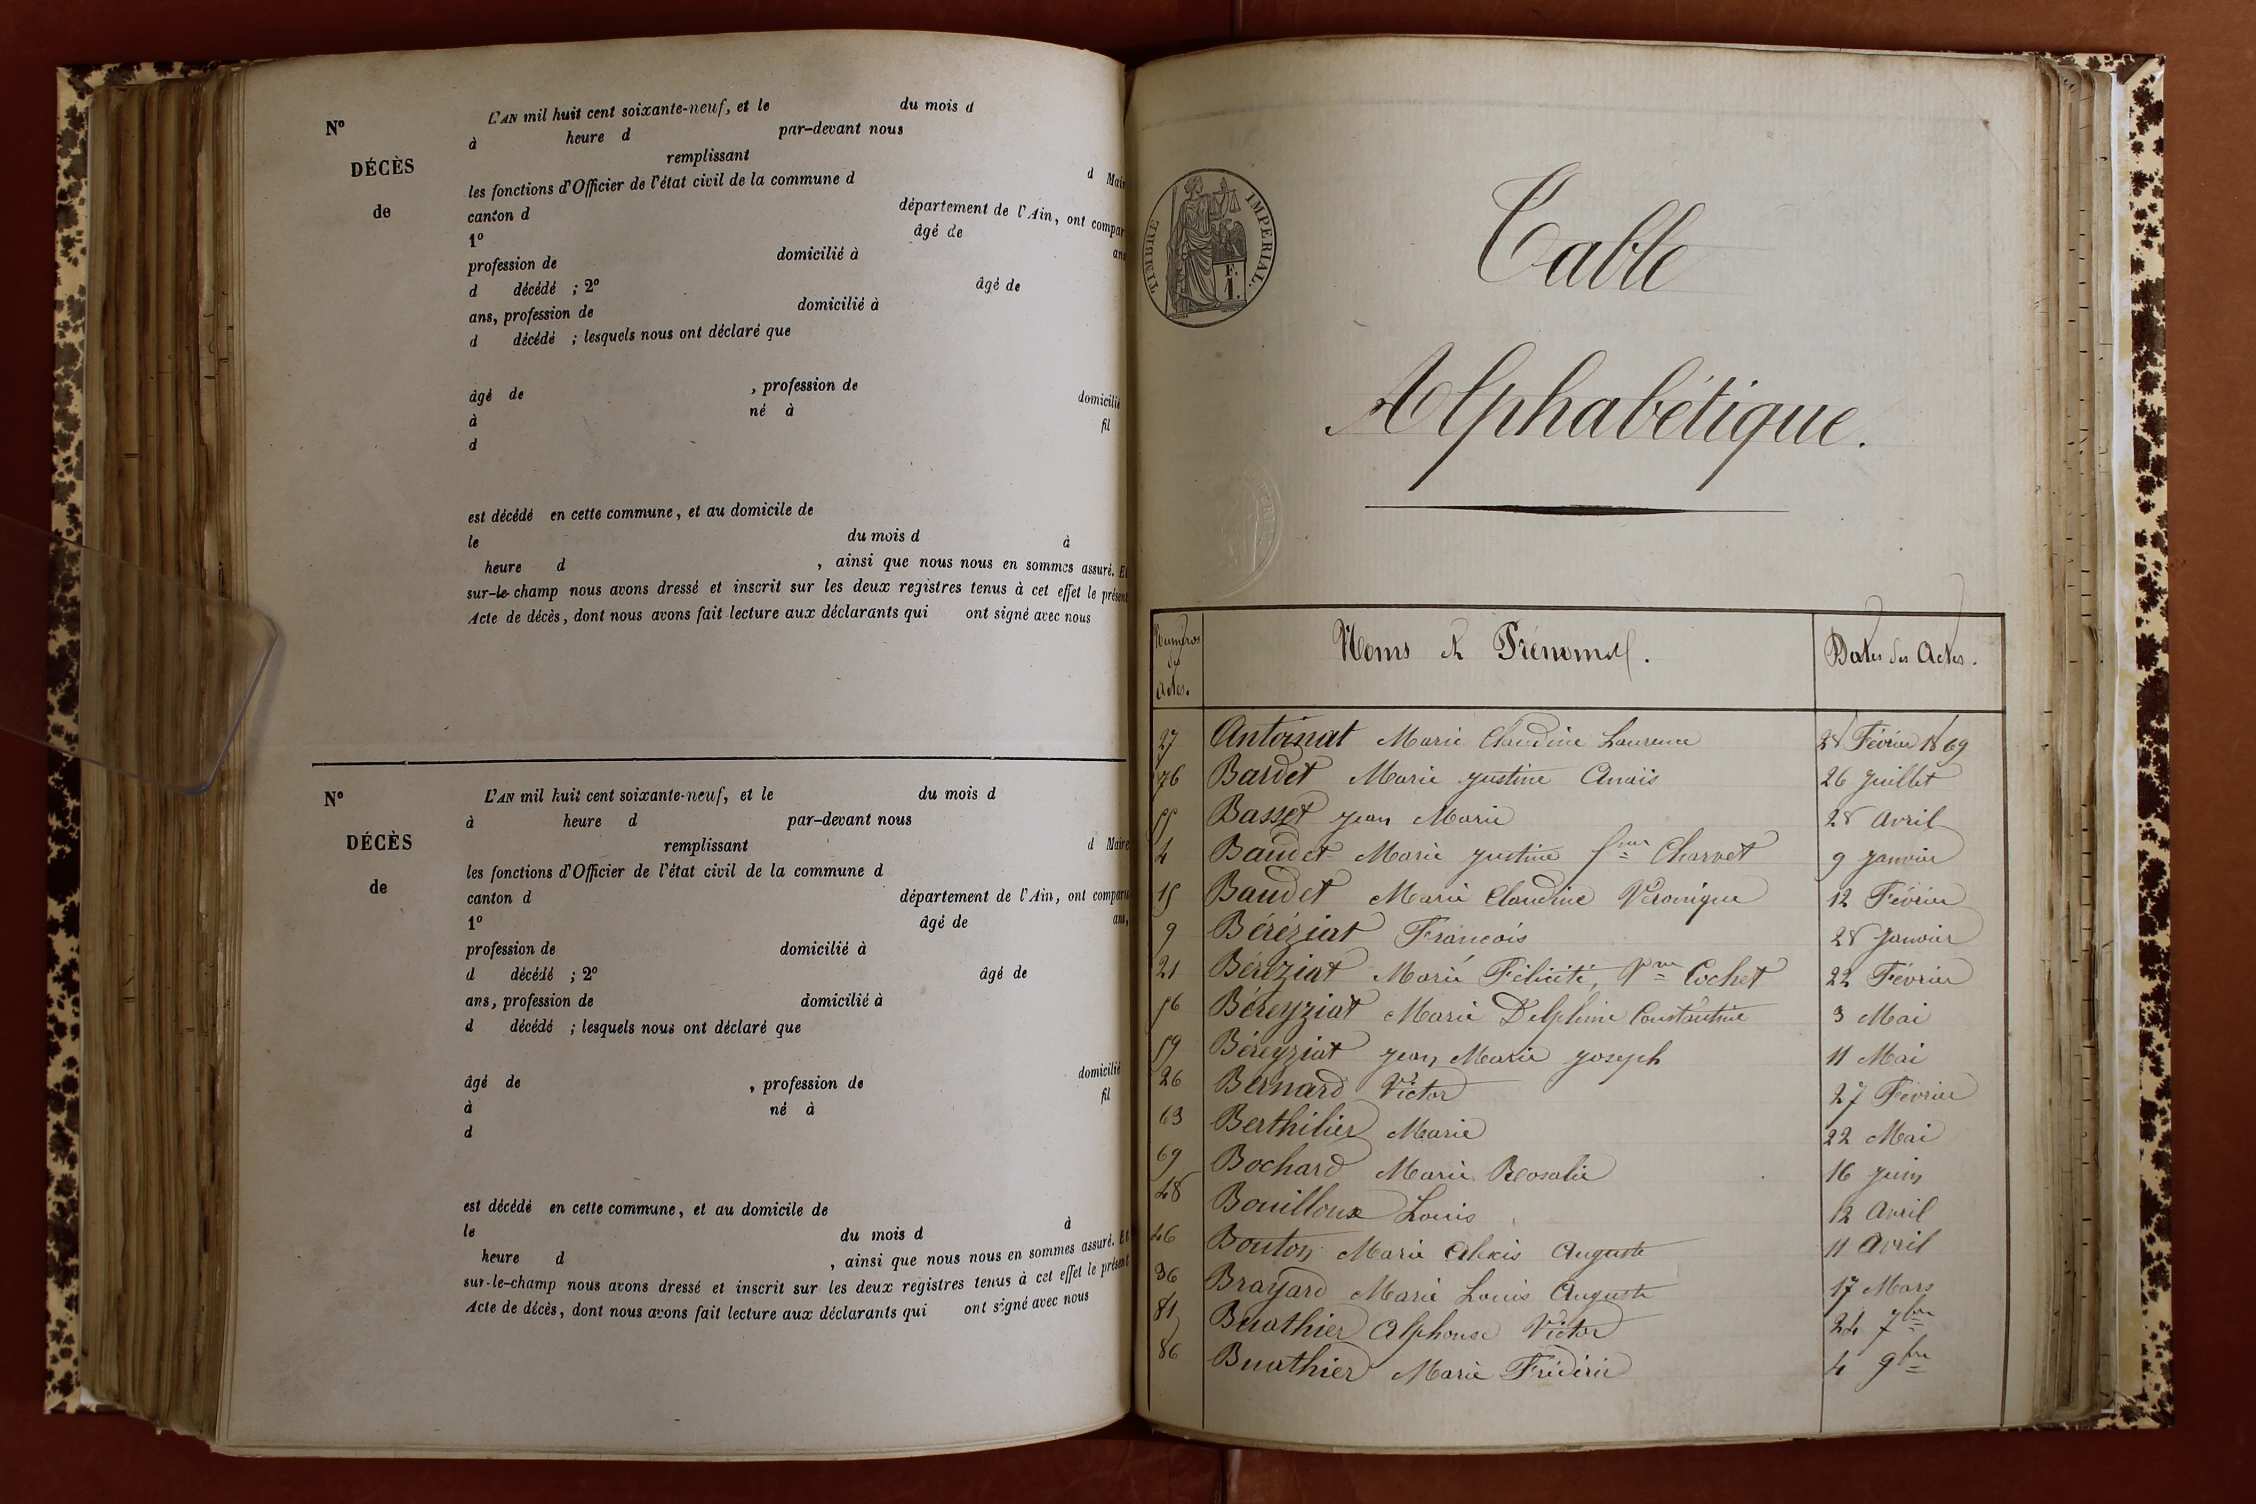 N° L'AN mil huit cent soixante-neuf, et le du mois d
à heure d par-devant nous
DÉCÈS remplissant
les fonctions d'Officier de l'état civil de la commune d d Mair
de canton d département de l'Ain, ont compar
1° âgé de ans
profession de domicilié à
d décédé ; 2° âgé de
ans, profession de domicilié à
d décédé ; lesquels nous ont déclaré que
âgé de , profession de domicilié
à né à fil
d
est décédé en cette commune, et au domicile de
le du mois d à
heure d , ainsi que nous nous en sommes assuré. Et
sur-le-champ nous avons dressé et inscrit sur les deux registres tenus à cet effet le présent
Acte de décès, dont nous avons fait lecture aux déclarants qui ont signé avec nous
N° L'AN mil huit cent soixante-neuf, et le du mois d
à heure d par-devant nous
DÉCÈS remplissant d Maire
les fonctions d'Officier de l'état civil de la commune d
de canton d département de l'Ain, ont comparu
1° âgé de ans,
profession de domicilié à
d décédé ; 2° âgé de
ans, profession de domicilié à
d décédé ; lesquels nous ont déclaré que
âgé de , profession de domicilié
à né à fil
d
est décédé en cette commune, et au domicile de
le du mois d à
heure d , ainsi que nous nous en sommes assuré. Et
sur-le-champ nous avons dressé et inscrit sur les deux registres tenus à cet effet le présent
Acte de décès, dont nous avons fait lecture aux déclarants qui ont signé avec nous
TIMBRE IMPÉRIAL.
F.
1.
Table
Alphabétique.
Numéros des actes. Noms et Prénoms. Dates des Actes.
27 Antoinat Marie Claudine Laurence 28 Février 1869
76 Bardet Marie Justine Anaïs 26 Juillet
55 Basset Jean Marie 28 Avril
4 Baudet Marie Justine fme Charvet 9 Janvier
15 Baudet Marie Claudine Véronique 12 Février
9 Béréziat François 28 Janvier
21 Béréziat Marie Félicité, Vve Cochet 22 Février
56 Béreyziat Marie Delphine Constantine 3 Mai
59 Béreyziat Jean Marie Joseph 11 Mai
26 Bernard Victor 27 Février
63 Berthilier Marie 22 Mai
69 Bochard Marie Rosalie 16 Juin
48 Bouilloux Louis 12 Avril
46 Bouton Marie Alexis Auguste 11 Avril
36 Brayard Marie Louis Auguste 17 Mars
81 Buathier Alphonse Victor 24 7bre
86 Buathier Marie Frédéric 4 9bre